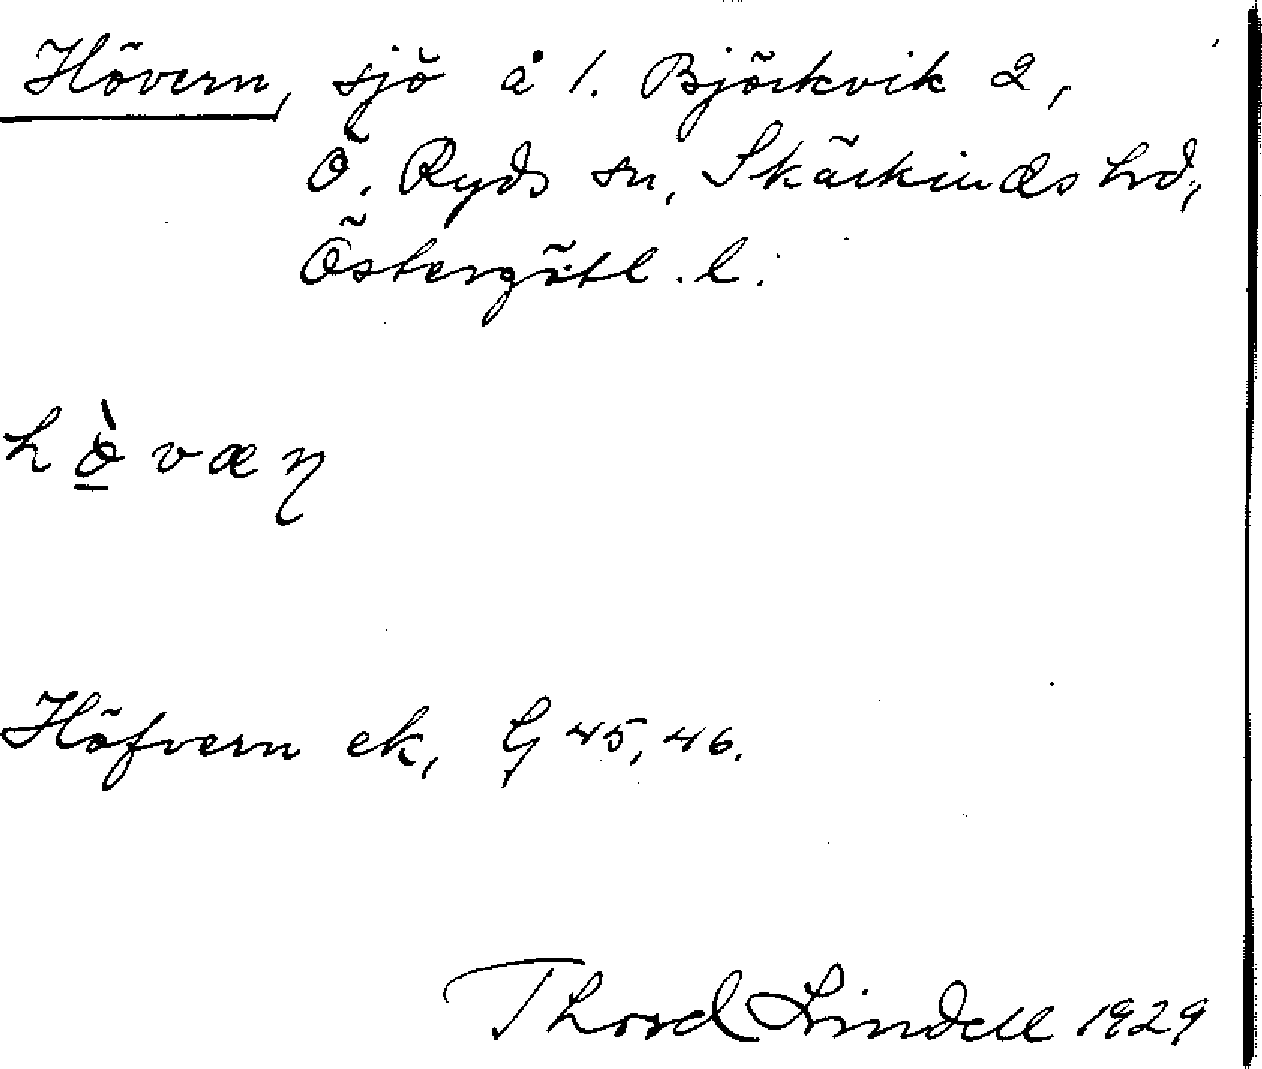 Hövern, sjö å 1. Björkvik 2,
Ö. Ryds sn, Skärkinds hd,
Östergötl. l.
hø̀væɳ
Höfvern ek, G 45, 46.
Thord Lindell 1929